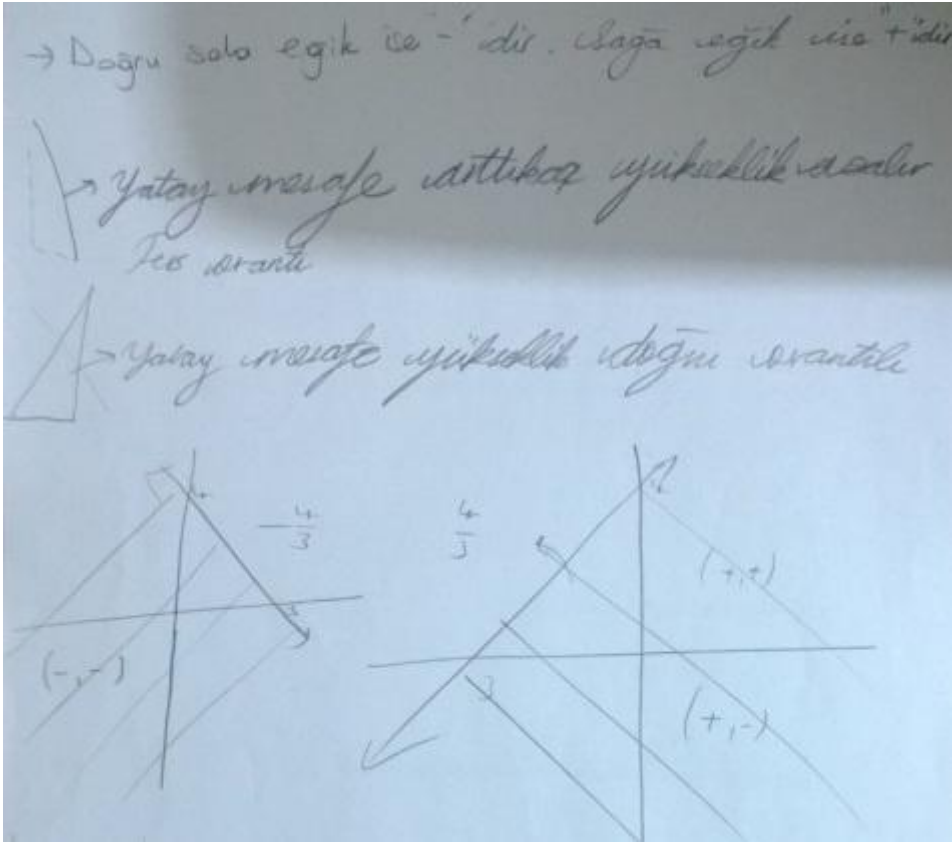 → Doğru sola egik ise "-" idir. Sağa eğik ise "+" idir
→ Yatay mesafe arttıkça yükseklik azalır
Ters orantı
→ Yatay mesafe yükseklik doğru orantılı
4
-4/3
3
(-,-)
4/3
4
(+,+)
3
(+,-)